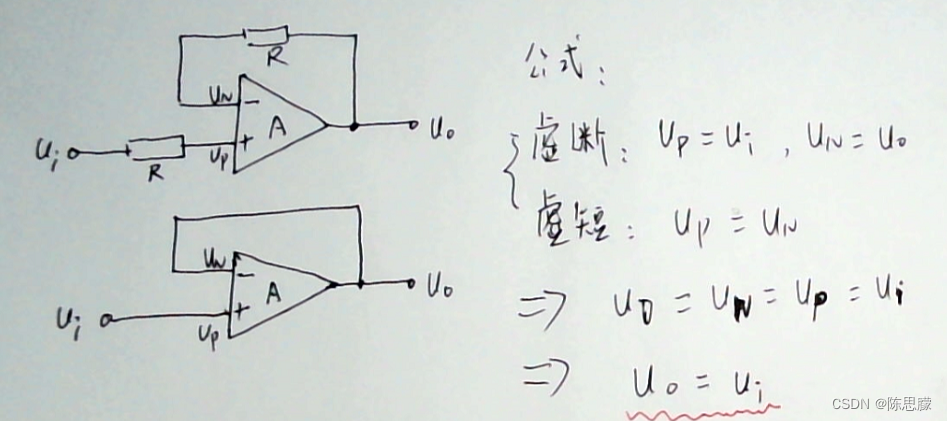 R
UN
-
A
Ui
R
UP
+
Uo
UN
-
A
Ui
UP
+
Uo
公式:
虚断: UP = Ui , UN = Uo
虚短: UP = UN
=> UO = UN = UP = Ui
=> Uo = Ui
CSDN @陈思朦